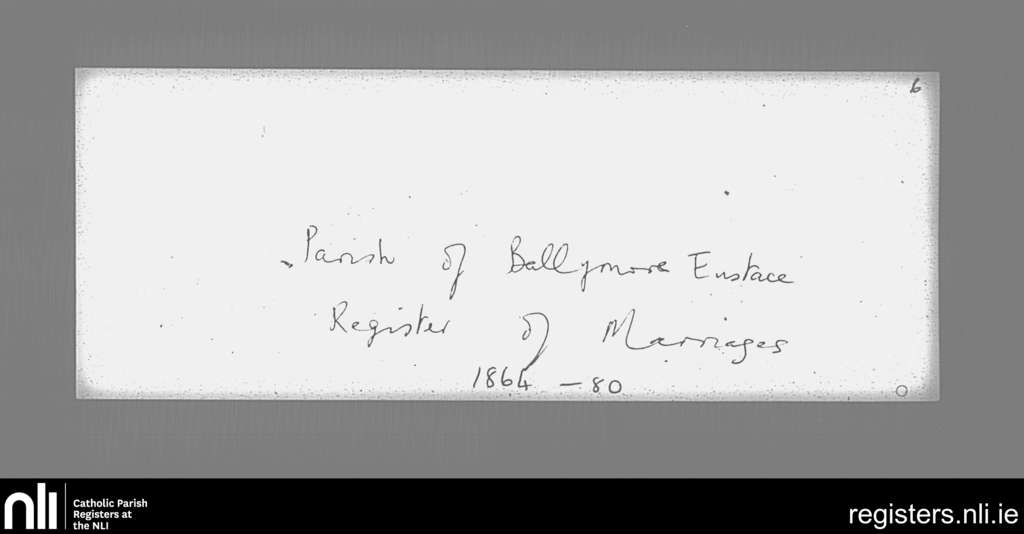 6
Parish of Ballymore Eustace
Register of Marriages
1864 – 80
nli
Catholic Parish
Registers at
the NLI
registers.nli.ie